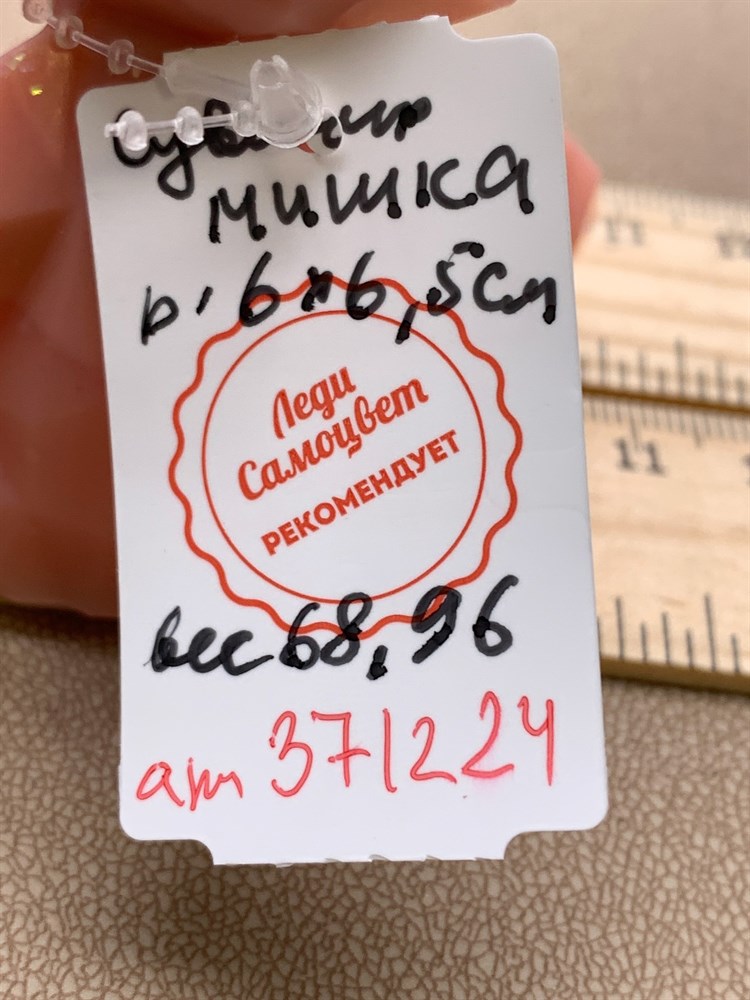 Сувенир
мишка
р. 6х6,5см
Леди
Самоцвет
РЕКОМЕНДУЕТ
вес 68,96
арт 371224
11
10
11